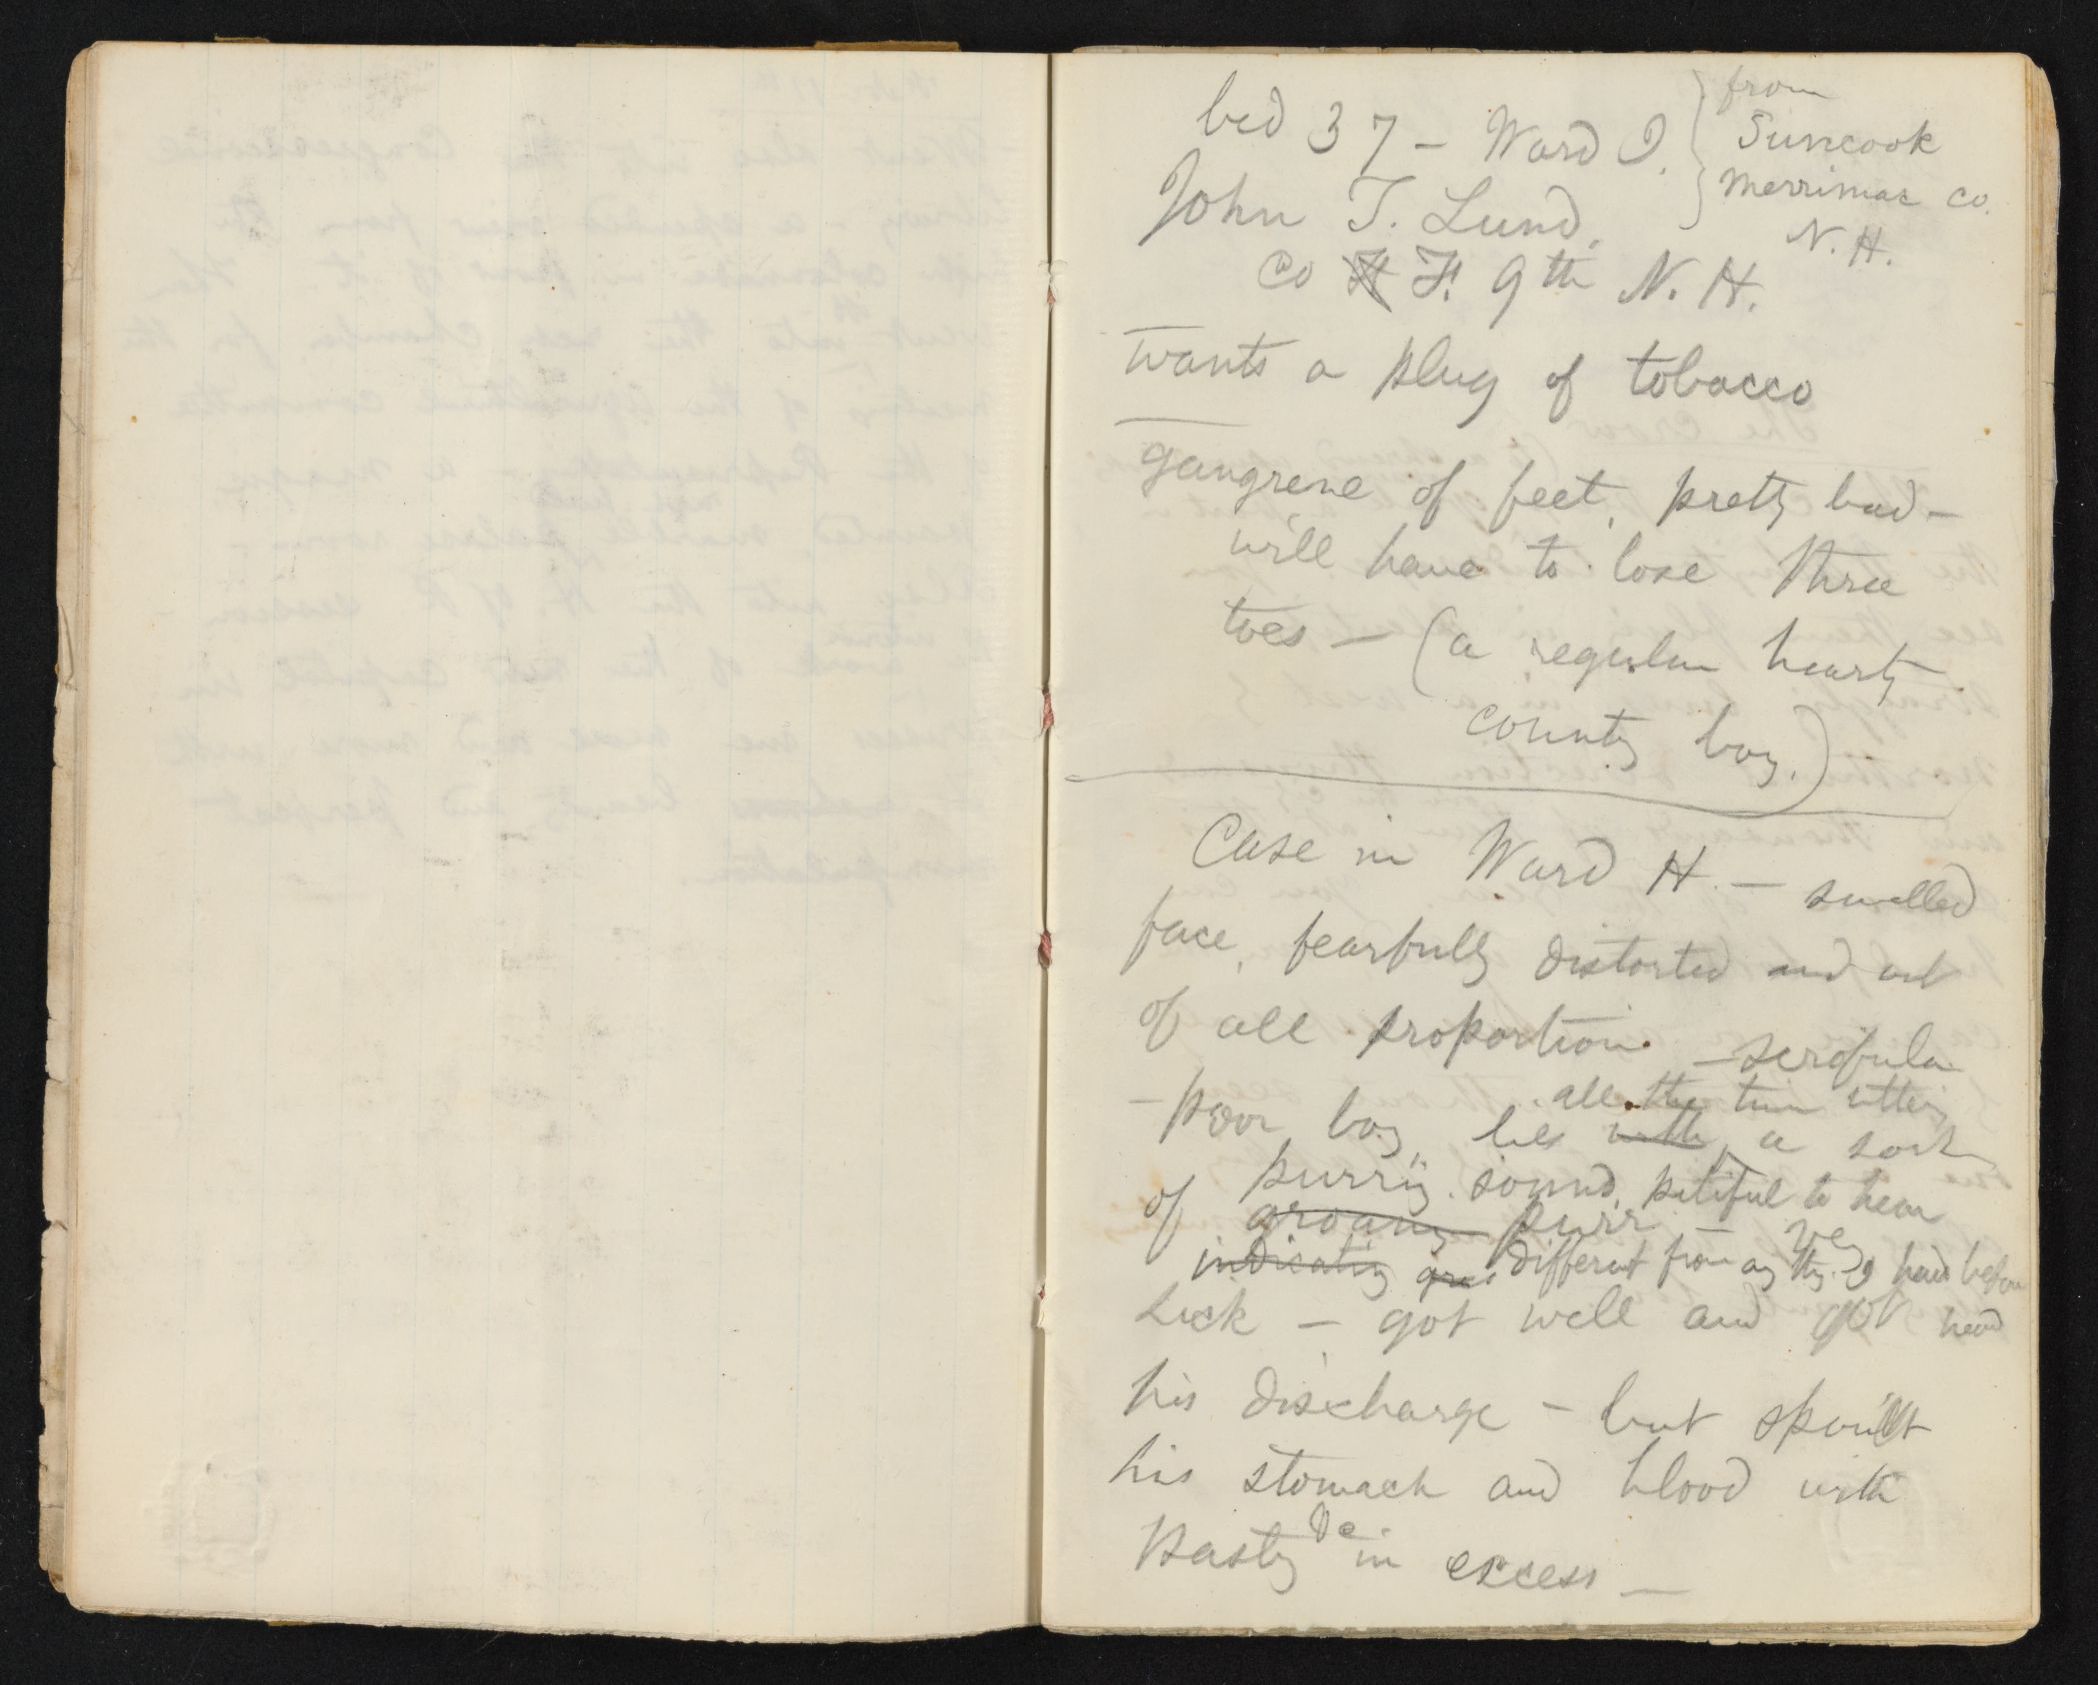 bed 37 – Ward I.
from
Suncook
Merrimac Co.
N. H.
John T. Lund,
Co H F. 9th N. H.
wants a plug of tobacco
gangrene of feet, pretty bad –
will have to lose three
toes – (a regular hearty
county boy.)
Case in Ward H. – swelled
face, fearfully distorted and out
of all proportion – scrofula
all the time uttering
– poor boy, lies with a sort
purring sound, pitiful to hear
of groaning purr –
very
indicating different from any thing I heard before
sick – got well and got
head
his discharge – but spoilt
his stomach and blood with
pasty in excess –